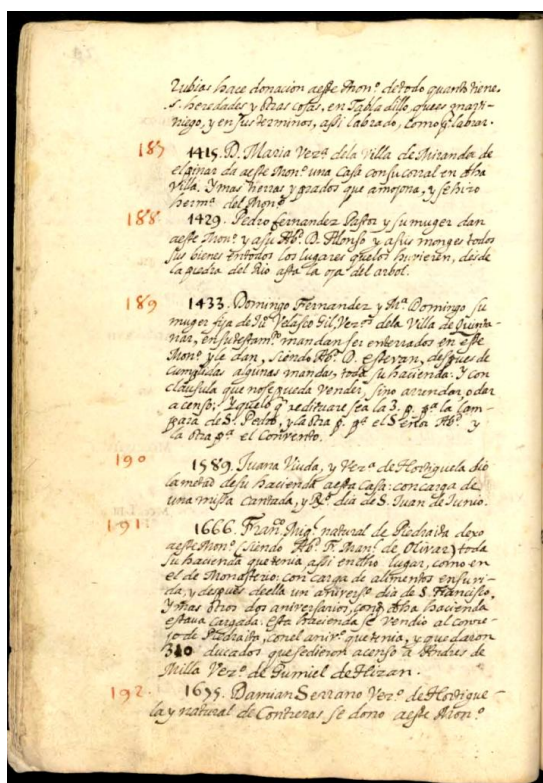 rubias hace donacion aeste Mon.º detodo quanto tiene,
s. heredades y otras cosas, en Tabladillo, quees mart-
niego, y en sus terminos, assi labrado, como p.r labrar.
187 1415. D. Maria Vez.ª dela Villa de Miranda de
el pinar da aeste Mon.º una Casa consucorral en dha
Villa. Ymas tierras y prados que amojona, y se hizo
herm.ª del Mon.º
188 1429. Pedro fernandez Pastor y su muger dan
aeste Mon.º y asu Ab.e D. Alonso y asus monges todos
sus bienes entodos los lugares quelos huvieren, desde
la piedra del Rio asta la oja del arbol.
189 1433. Domingo Fernandez y M.ª Domingo su
muger fija de Ju.º Velasco Gil, Vez.os dela Villa de Quinta-
nar, ensutestam.to mandan ser enterrados en este
Mon.º y le dan, siendo Ab.e D. estevan, despues de
cumplidas algunas mandas, toda su hacienda. Y con
clausula que nose pueda vender, sino arrendar, o dar
a censo; Yquelo q redituare sea la 3. p. p.ª la lam-
para de S. Pedro, y la otra p. p.ª el Señor Ab.e y
la otra p.ª el Convento.
190 1589. Juana Viuda, y Vez.ª de Hortiguela dio
la metad desu hacienda aesta Casa: concarga de
una missa Cantada, y R.so dia de S. Juan de Junio.
191 1666. Fran.co Mig.l natural de Piedraita dexo
aeste Mon.º (siendo Ab.e F. Man.l de Olivar) toda
su hacienda quetenia assi endho lugar, como en
el de Monasterio: con carga de alimentos ensuvi-
da, y despues deella un anivers.º dia de S. Francisco.
Ymas otros dos aniversarios, conq dha hacienda
estava cargada. Esta hacienda se vendio al conce-
jo de Piedraita, conel aniv.º quetenia, y quedaron
310 ducados quesedieron acenso a Andres de
Milla Vez.º de Gumiel de Hizan.
192. 1675. Damian Serrano Vez.º de Hortigue-
la y natural de Contreras se dono aeste Mon.º